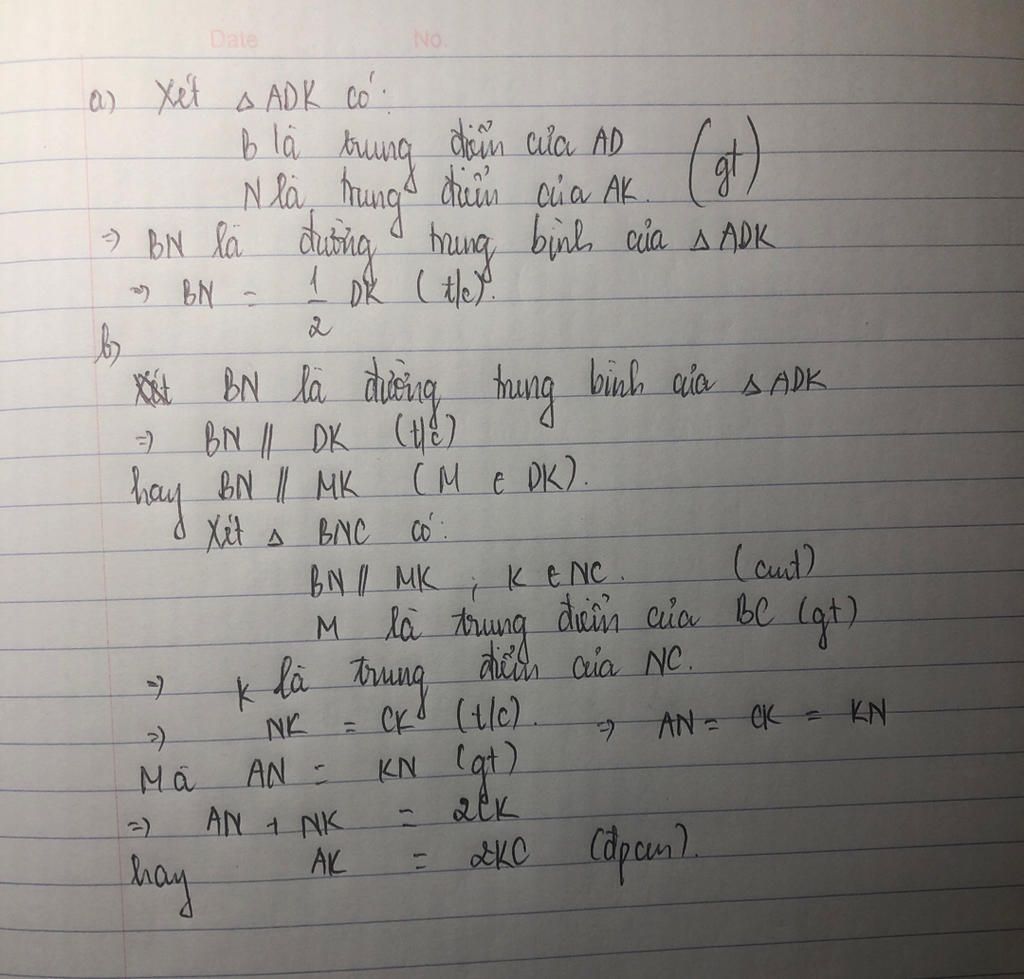 Date No.
a) Xét △ ADK có:
B là trung điểm của AD
N là trung điểm của AK. (gt)
⇒ BN là đường trung bình của △ ADK
⇒ BN = 1/2 DK (t/c).
b)
BN là đường trung bình của △ ADK
⇒ BN // DK (t/c)
hay BN // MK (M ∈ DK).
Xét △ BNC có:
BN // MK ; K ∈ NC. (cmt)
M là trung điểm của BC (gt)
⇒ K là trung điểm của NC.
⇒ NK = CK (t/c). ⇒ AN = CK = KN
Mà AN = KN (gt)
⇒ AN + NK = 2CK
hay AK = 2KC (đpcm).